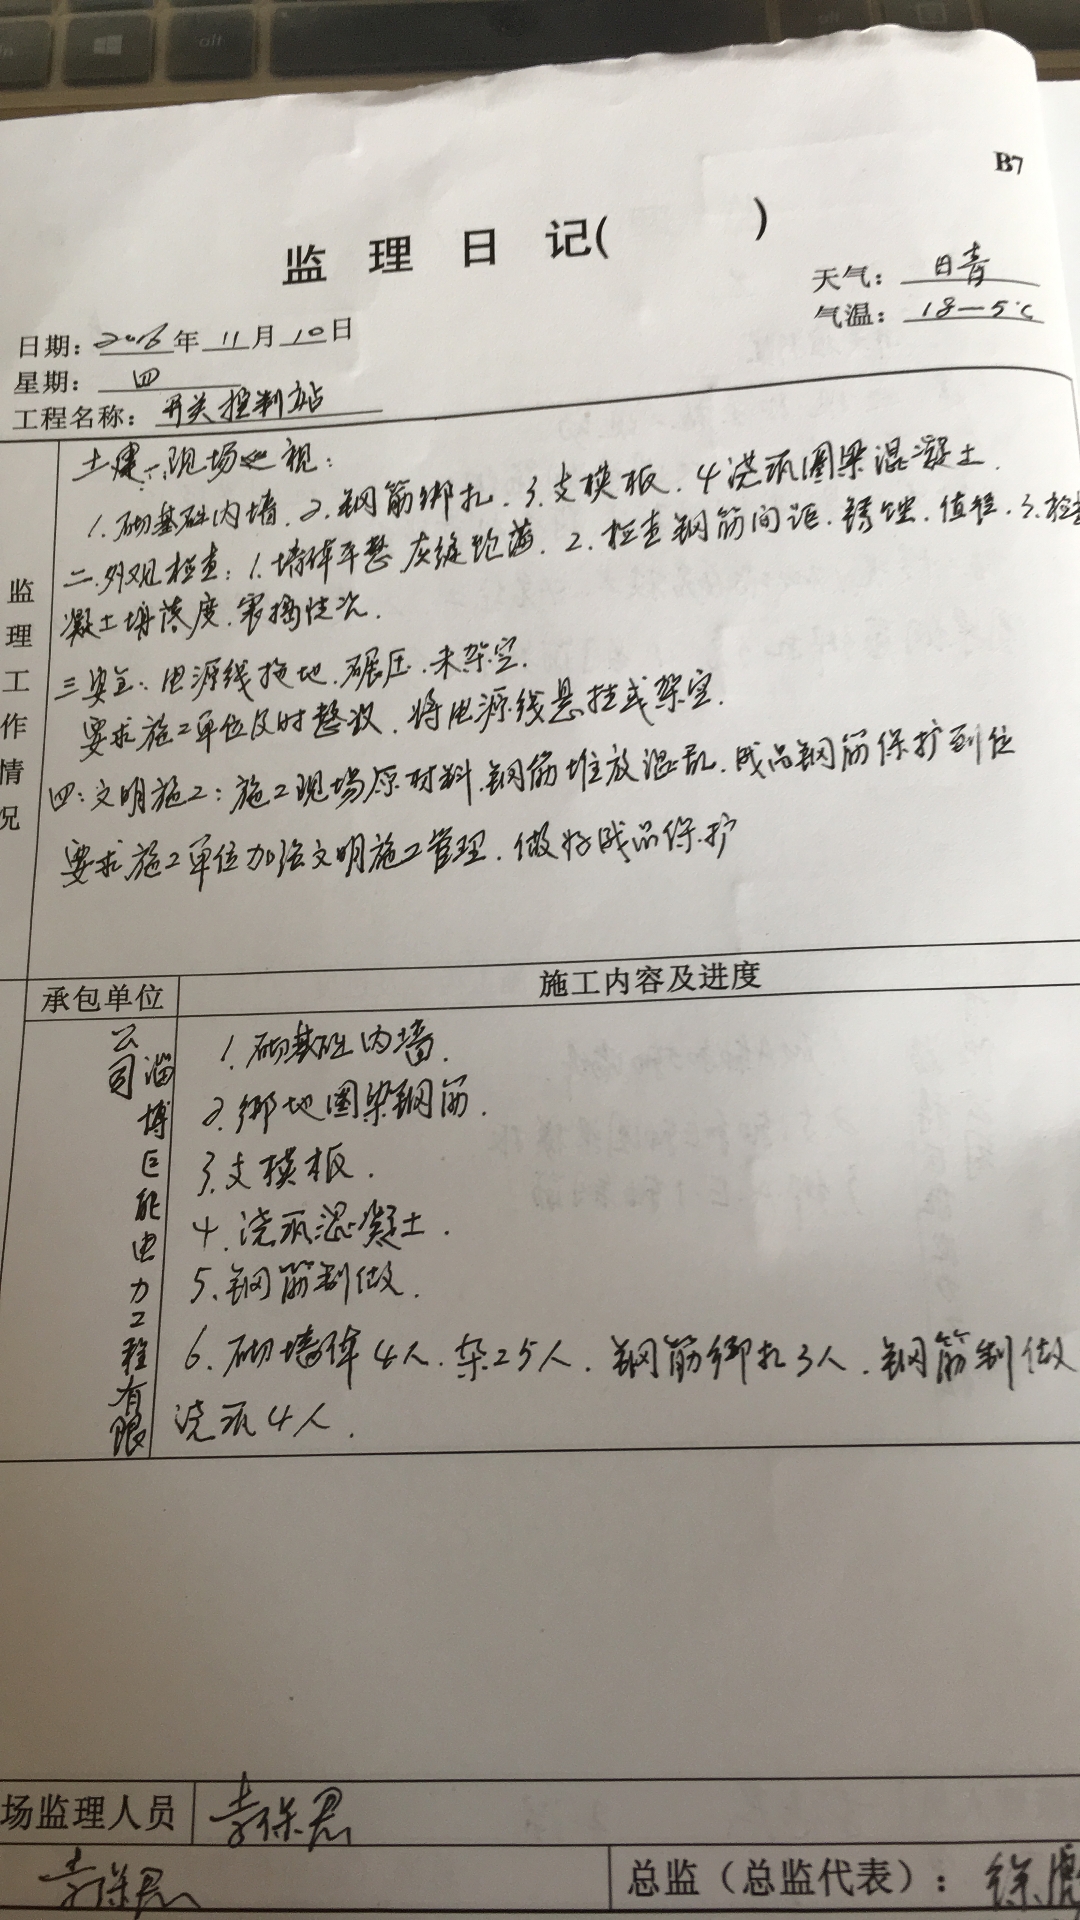 B7
监理日记( )
天气：晴
气温：18—5℃
日期：2016年11月10日
星期：四
工程名称：开关控制站
监理工作情况
土建：一.现场巡视：
1.砌基础内墙.2.钢筋绑扎.3.支模板.4浇筑圈梁混凝土.
二.外观检查：1.墙体平整 灰缝饱满.2.检查钢筋间距.锈蚀.值径.3.检查
凝土塌落度.震捣情况.
三安全：电源线拖地.碾压.未架空.
要求施工单位及时整改.将电源线悬挂或架空.
四：文明施工：施工现场原材料.钢筋堆放混乱.成品钢筋保护到位
要求施工单位加强文明施工管理.做好成品保护
承包单位 施工内容及进度
淄博巨能电力工程有限公司
1.砌基础内墙.
2.绑地圈梁钢筋.
3.支模板.
4.浇筑混凝土.
5.钢筋制做.
6.砌墙体4人.杂工5人.钢筋绑扎3人.钢筋制做
浇筑4人.
场监理人员 李保忠
李保忠 总监（总监代表）：徐虎